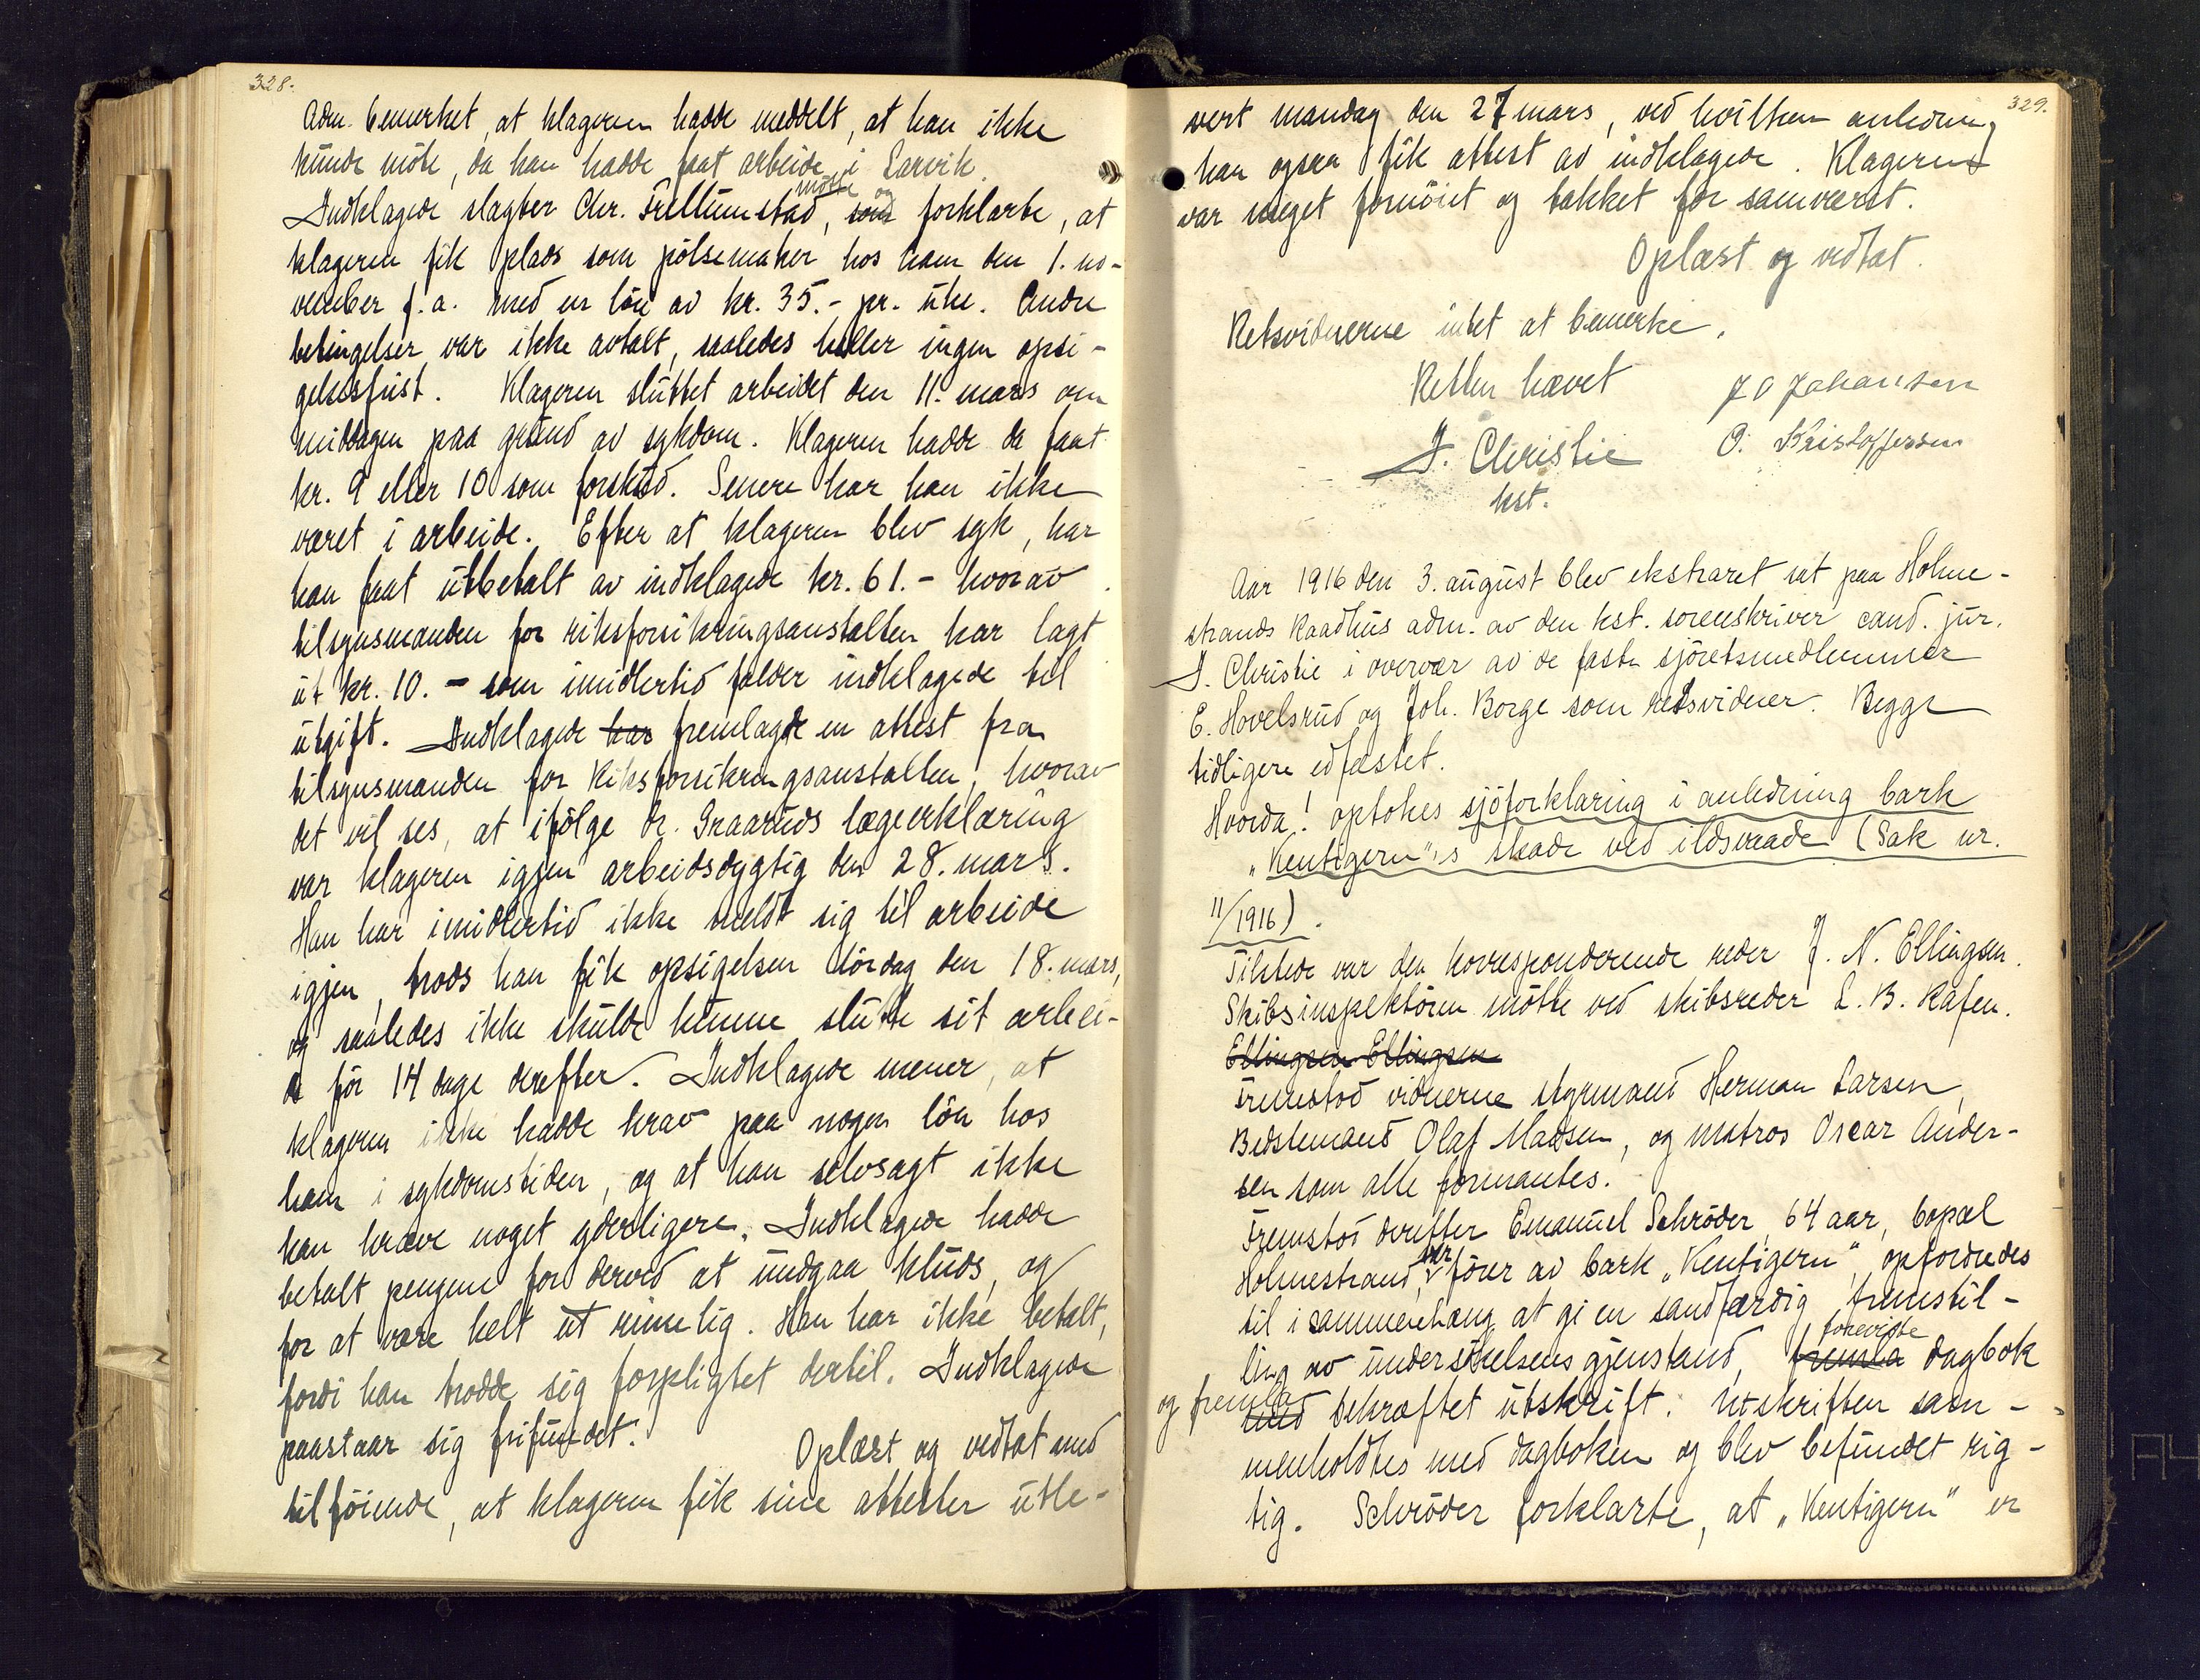 328.
Adm. bemerket, at klageren hadde meddelt, at han ikke
kunde møte, da han hadde faat arbeide i Larvik.
Indklagede slagter Chr. Trellumstad, møtte og som forklarte, at
klageren fik plads som pølsemaker hos ham den 1. no-
vember f.a. med en løn av kr. 35.- pr. uke. Andre
betingelser var ikke avtalt, saaledes heller ingen opsi-
gelsesfrist. Klageren sluttet arbeidet den 11. mars om
middagen paa grund av sykdom. Klageren hadde da faat
kr. 9 eller 10 som forskud. Senere har han ikke
været i arbeide. Efter at klageren blev syk, har
han faat utbetalt av indklagede kr. 61.- hvorav
tilsynsmanden for riksforsikringsanstalten har lagt
ut kr. 10.- som imidlertid falder indklagede til
utgift. Indklagede har fremlagde en attest fra
tilsynsmanden for Riksforsikringsanstalten, hvorav
det vil ses, at ifølge dr. Graaruds lægeerklæring
var klageren igjen arbeidsdygtig den 28. mars.
Han har imidlertid ikke meldt sig til arbeide
igjen, trods han fik opsigelsen lørdag den 18. mars,
og saaledes ikke skulde kunne slutte sit arbei-
de før 14 dage derefter. Indklagede mener, at
klageren ikke hadde krav paa nogen løn hos
ham i sykdomstiden, og at han selvsagt ikke
kan kræve noget yderligere. Indklagede hadde
betalt pengene for derved at undgaa kluds, og
for at være helt ut rimelig. Han har ikke betalt,
fordi han trodde sig forpligtet dertil. Indklagede
paastaar sig frifundet.
Oplæst og vedtat med
tilføiende, at klageren fik sine attester utle-
329.
vert mandag den 27 mars, ved hvilken anledning
han ogsaa fik attest av indklagede. Klageren
var meget fornøiet og takket for samværet.
Oplæst og vedtat.
Retsvidnerne intet at bemerke.
Retten hævet
J O Johansen
J. Christie
O. Kristoffersen
kst.
Aar 1916 den 3. august blev ekstraret sat paa Holme-
strands Raadhus adm. av den kst. sorenskriver cand. jur.
J. Christie i overvær av de faste sjøretsmedlemmer
E. Hovelsrud og Joh. Borge som retsvidner. Begge
tidligere edfæstet.
Hvorda! optokes sjøforklaring i anledning bark
„Kentigern"s skade ved ildsvaade (Sak nr.
11/1916).
Tilstede var den korresponderende reder J. N. Ellingsen.
Skibsinspektøren møtte ved skibsreder L. B. Rafen.
Ellingsen Ellingsen
Fremstod vidnerne styrmand Herman Larsen,
Bedstemand Olaf Madsen, og matros Oscar Ander-
sen som alle formantes.
Fremstod derefter Emanuel Schrøder, 64 aar, bopæl
Holmestrand, var fører av bark „Kentigern", opfordredes
til i sammenhæng at gi en sandfærdig fremstil-
ling av undersøkelsens gjenstand, foreviste fremla dagbok
og fremla med bekræftet utskrift. Utskriften sam-
menholdtes med dagboken og blev befundet rig-
tig. Schrøder forklarte, at „Kentigern" er